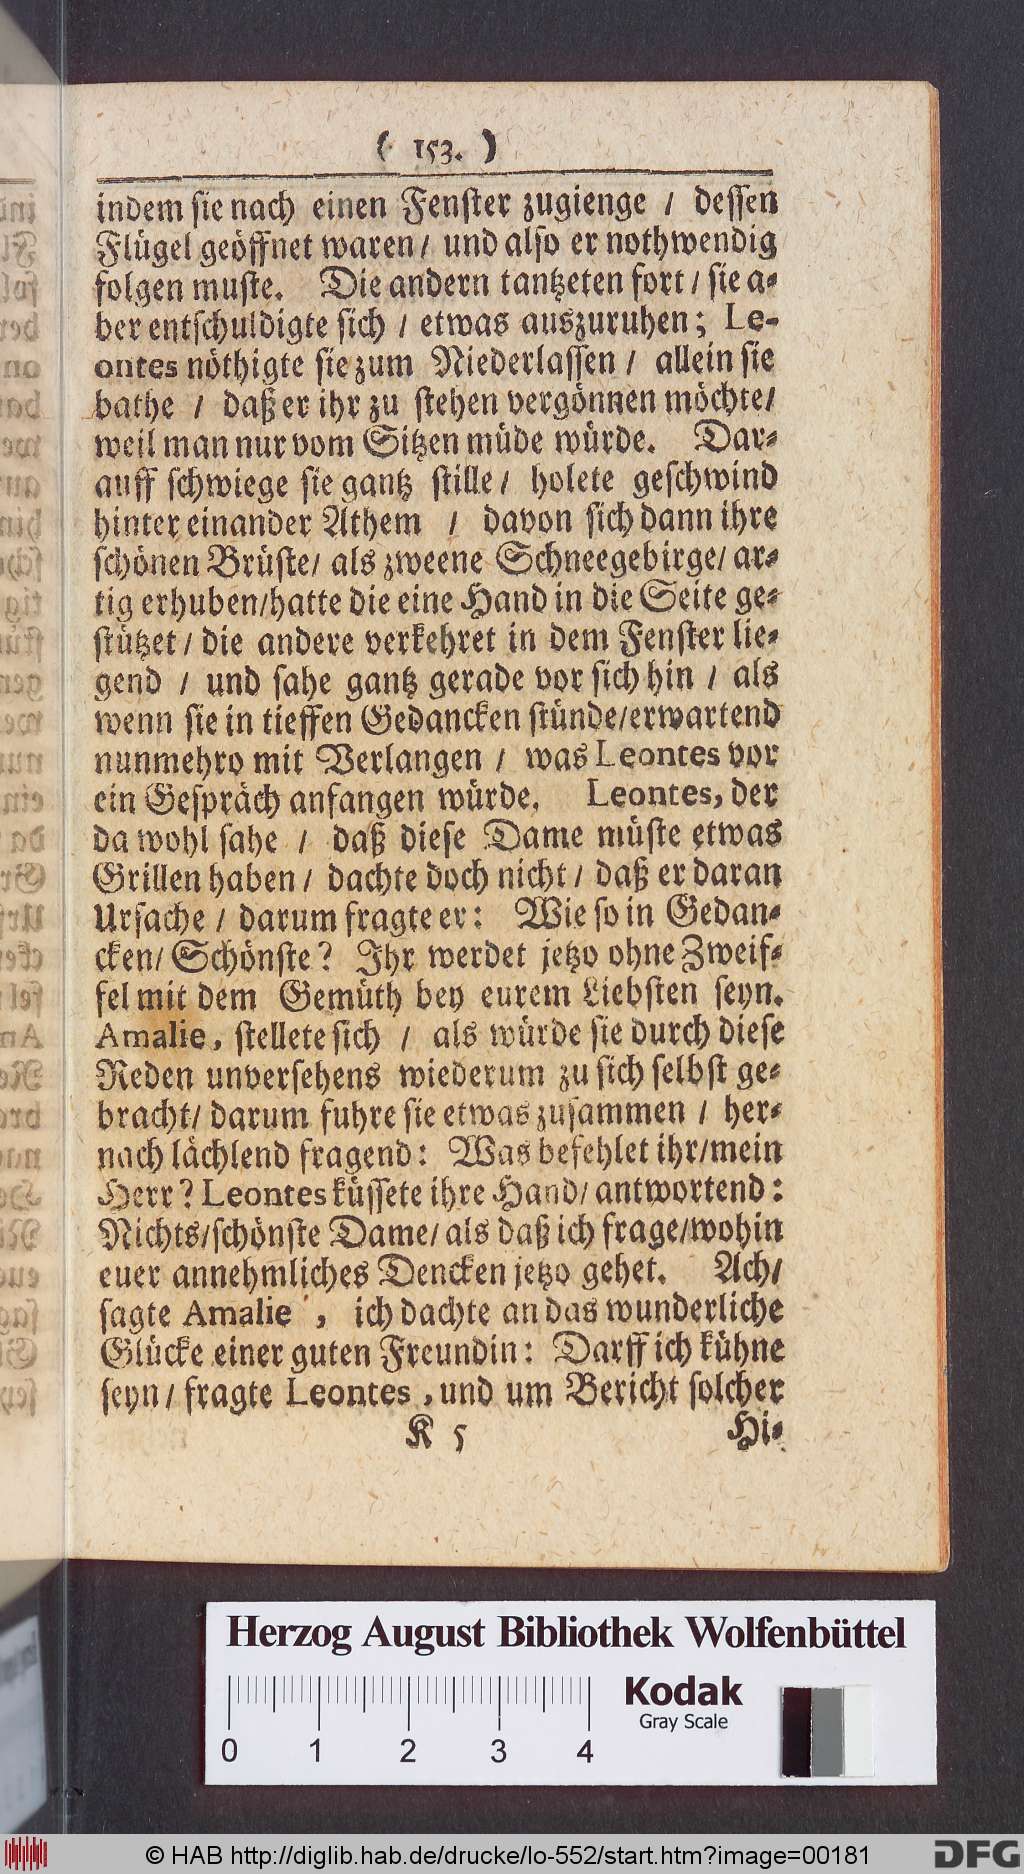 ( 153. )
indem sie nach einen Fenster zugienge / dessen
Flügel geöffnet waren / und also er nothwendig
folgen muste. Die andern tantzeten fort / sie a-
ber entschuldigte sich / etwas auszuruhen; Le-
ontes nöthigte sie zum Niederlassen / allein sie
bathe / daß er ihr zu stehen vergönnen möchte/
weil man nur vom Sitzen müde würde. Dar-
auff schwiege sie gantz stille / holete geschwind
hinter einander Athem / davon sich dann ihre
schönen Brüste/ als zweene Schneegebirge/ ar-
tig erhuben/hatte die eine Hand in die Seite ge-
stützet / die andere verkehret in dem Fenster lie-
gend / und sahe gantz gerade vor sich hin / als
wenn sie in tieffen Gedancken stünde/erwartend
nunmehro mit Verlangen / was Leontes vor
ein Gespräch anfangen würde. Leontes, der
da wohl sahe / daß diese Dame müste etwas
Grillen haben / dachte doch nicht / daß er daran
Ursache / darum fragte er: Wie so in Gedan-
cken/ Schönste? Ihr werdet jetzo ohne Zweif-
fel mit dem Gemüth bey eurem Liebsten seyn.
Amalie, stellete sich / als würde sie durch diese
Reden unversehens wiederum zu sich selbst ge-
bracht/ darum fuhre sie etwas zusammen / her-
nach lächlend fragend: Was befehlet ihr/mein
Herr? Leontes küssete ihre Hand/ antwortend:
Nichts/schönste Dame/ als daß ich frage/wohin
euer annehmliches Dencken jetzo gehet. Ach/
sagte Amalie , ich dachte an das wunderliche
Glücke einer guten Freundin: Darff ich kühne
seyn / fragte Leontes , und um Bericht solcher
K 5 Hi-
Herzog August Bibliothek Wolfenbüttel
0 1 2 3 4
Kodak
Gray Scale
© HAB http://diglib.hab.de/drucke/lo-552/start.htm?image=00181
DFG